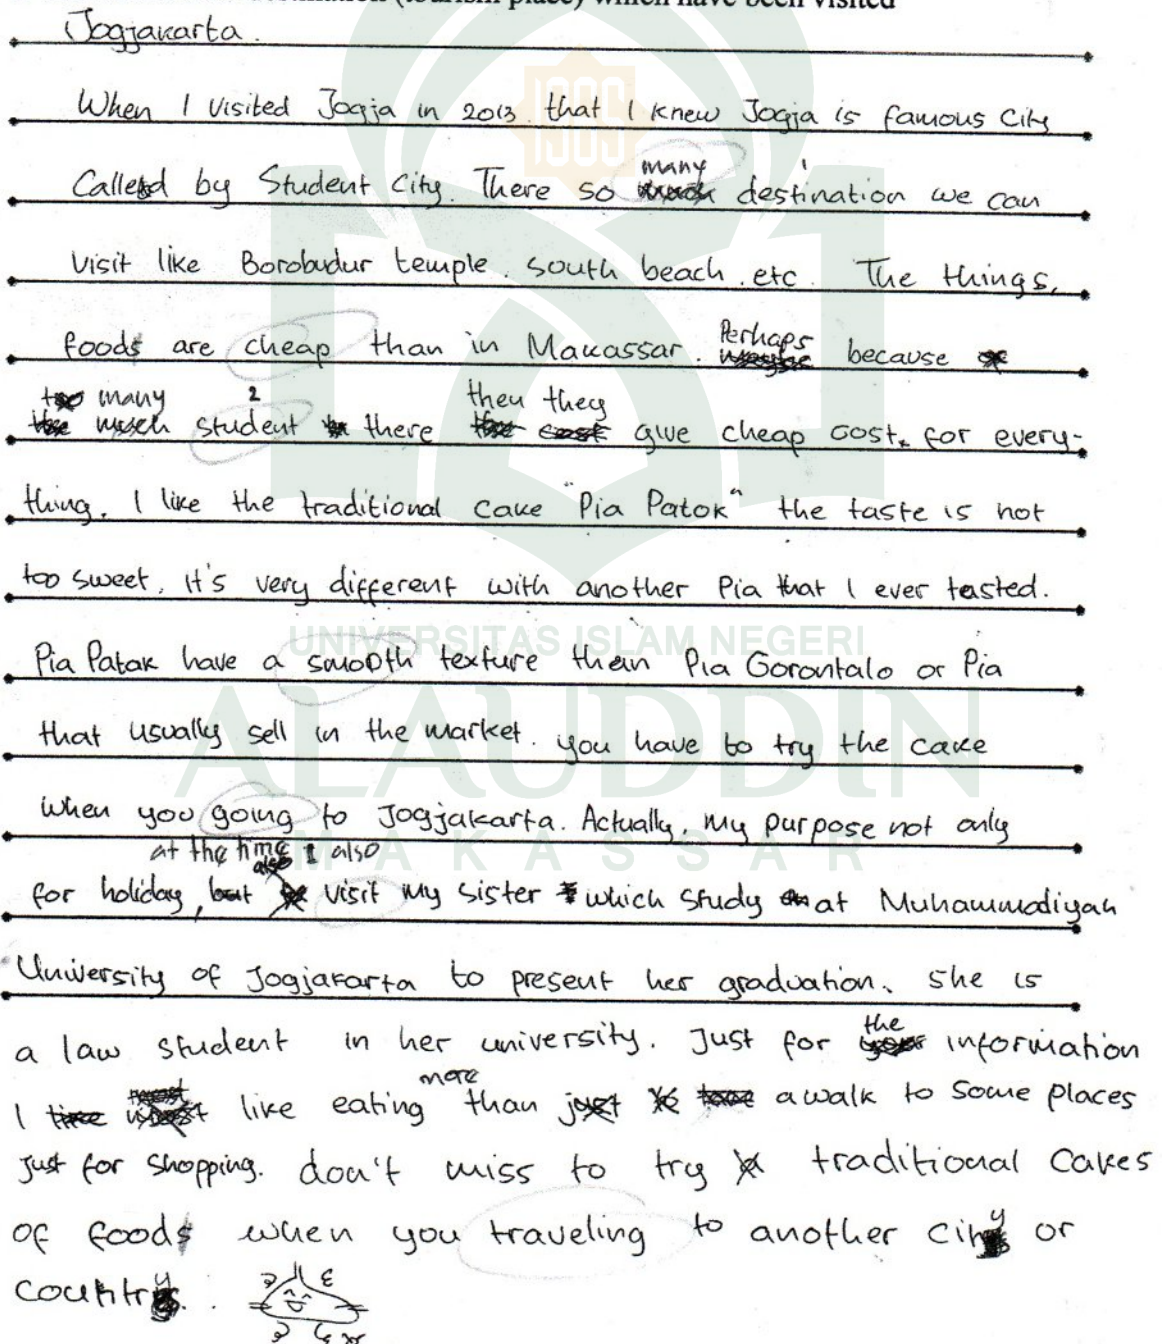 (tourism place) which have been visited
Jogjakarta.
When I visited Jogja in 2013 that I knew Jogja is famous City
Called by Student City. There so many destination we can
visit like Borobudur temple. south beach. etc. The things,
foods are cheap than in Makassar. Perhaps because
many student there then they give cheap cost. for every-
thing. I like the traditional cake "Pia Patok" the taste is not
too sweet. it's very different with another Pia that I ever tasted.
Pia Patak have a smooth texture than Pia Gorontalo or Pia
that usually sell in the market. you have to try the cake
when you going to Jogjakarta. Actually, my purpose not only
for holiday, at the time I also visit my sister which study at Muhammadiyah
University of Jogjakarta to present her graduation. She is
a law student in her university. Just for the information
I like eating more than a walk to some places
just for shopping. don't miss to try traditional cakes
of food when you traveling to another city or
country.
1905
UNIVERSITAS ISLAM NEGERI
ALAUDDIN
MAKASSAR